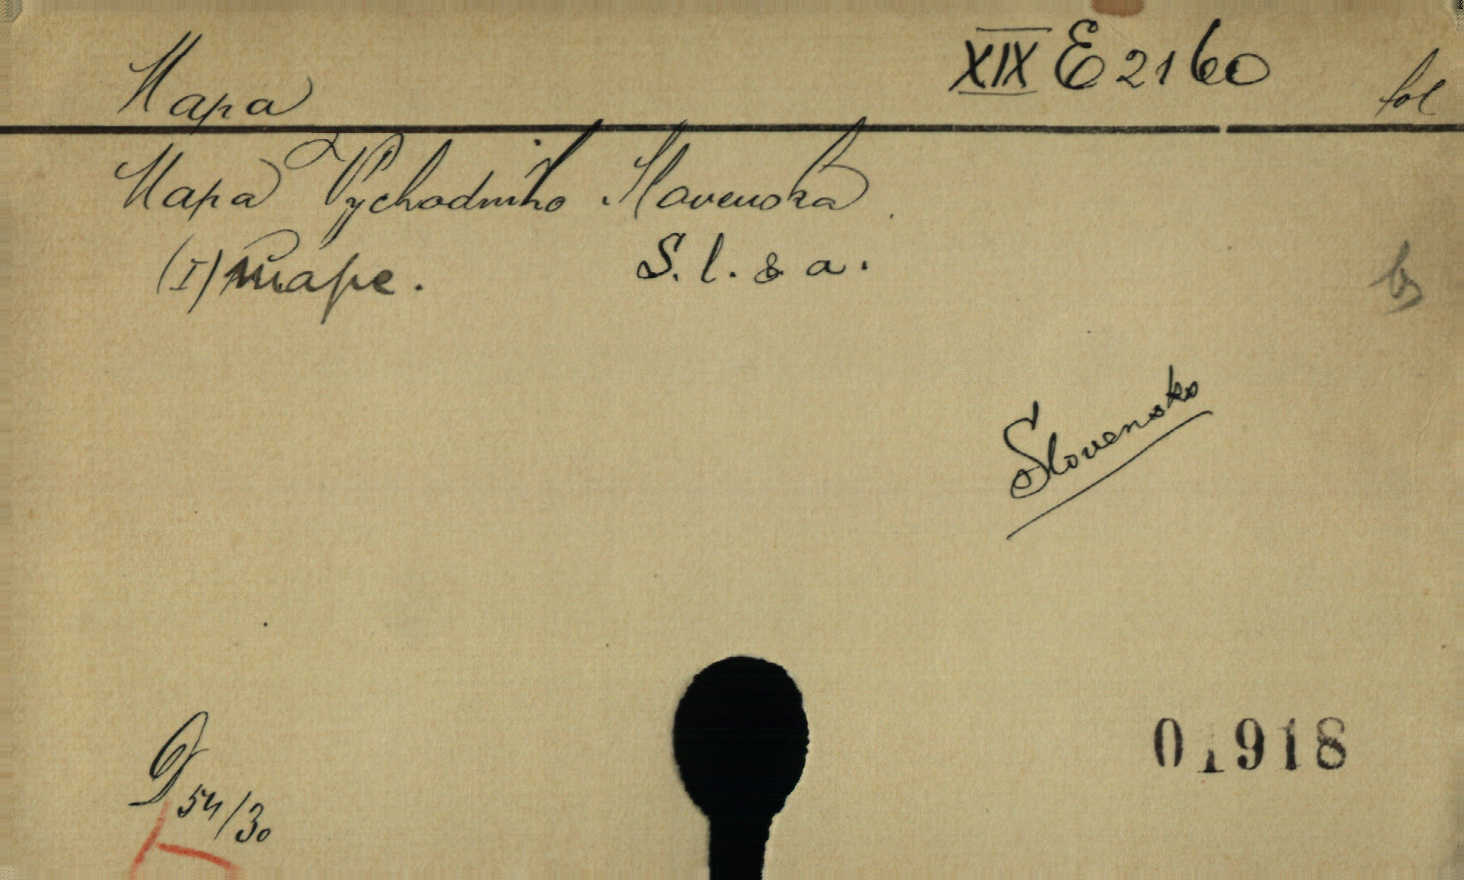 Mapa XIX E 2160 fol
Mapa Východního Slovenska.
(I) mape. S. l. & a.
Slovensko
01918
D 54/30